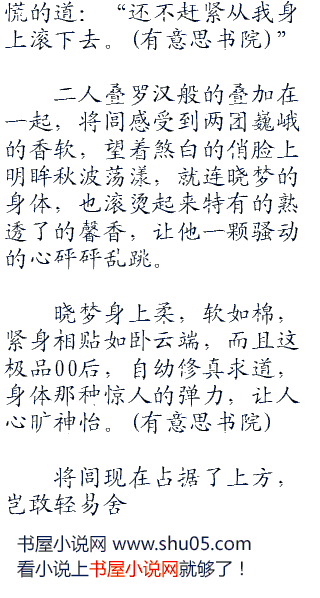 慌的道：“还不赶紧从我身
上滚下去。(有意思书院)”
二人叠罗汉般的叠加在
一起，将闾感受到两团巍峨
的香软，望着煞白的俏脸上
明眸秋波荡漾，就连晓梦的
身体，也滚烫起来特有的熟
透了的馨香，让他一颗骚动
的心砰砰乱跳。
晓梦身上柔，软如棉，
紧身相贴如卧云端，而且这
极品00后，自幼修真求道，
身体那种惊人的弹力，让人
心旷神怡。(有意思书院)
将闾现在占据了上方，
岂敢轻易舍
书屋小说网 www.shu05.com
看小说上书屋小说网就够了！